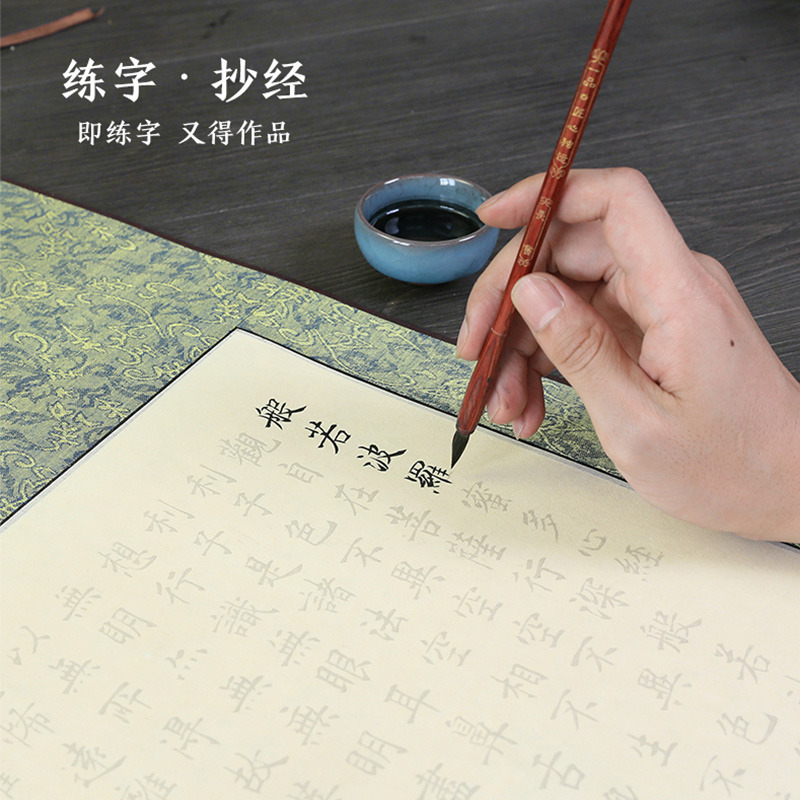 练字·抄经
即练字 又得作品
般若波羅蜜多心經
觀自在菩薩行深般若
利子色不異空空不異色
利子是諸法空相不生
想行識無眼耳鼻舌
無明亦無無明盡
以無所得故
怖遠離